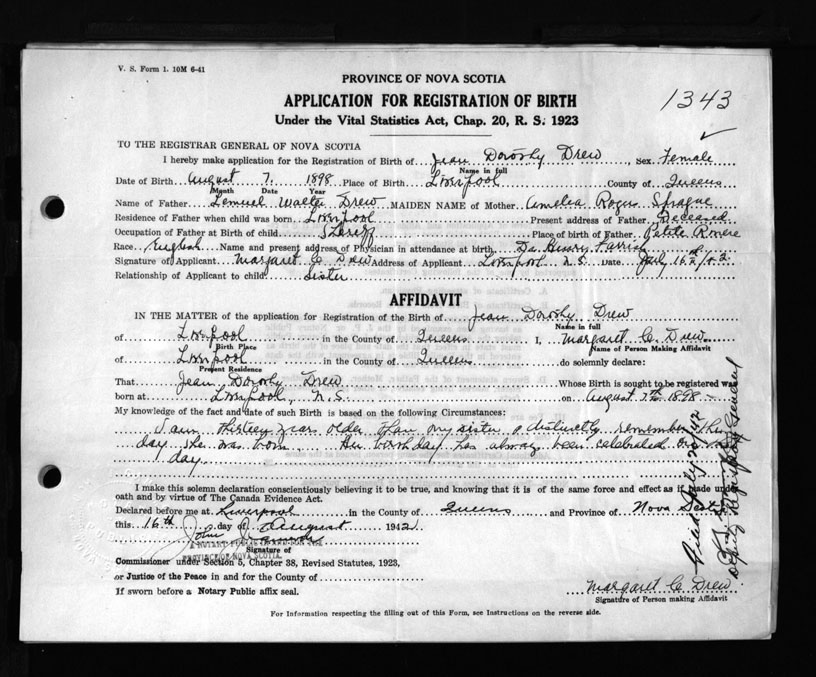 V. S. Form 1. 10M 6-41
PROVINCE OF NOVA SCOTIA
1343
APPLICATION FOR REGISTRATION OF BIRTH
Under the Vital Statistics Act, Chap. 20, R. S. 1923
TO THE REGISTRAR GENERAL OF NOVA SCOTIA
I hereby make application for the Registration of Birth of Jean Dorothy Drew, Sex Female
Name in full
Date of Birth August 7. 1898 Place of Birth Liverpool County of Queens
Month Date Year
Name of Father Lemuel Walter Drew MAIDEN NAME of Mother Amelia Rogers Sprague
Residence of Father when child was born Liverpool Present address of Father Deceased
Occupation of Father at Birth of child Sheriff Place of birth of Father Petite Riviere
Race English Name and present address of Physician in attendance at birth Dr. Henry Farrish
Signature of Applicant Margaret C Drew Address of Applicant Liverpool N.S. Date July 16
Relationship of Applicant to child Sister
AFFIDAVIT
IN THE MATTER of the application for Registration of the Birth of Jean Dorothy Drew
Name in full
of Liverpool in the County of Queens I, Margaret C. Drew
Birth Place Name of Person Making Affidavit
of Liverpool in the County of Queens do solemnly declare:
Present Residence
That Jean Dorothy Drew Whose Birth is sought to be registered was
born at Liverpool, N.S. on August 7th 1898
My knowledge of the fact and date of such Birth is based on the following Circumstances:
I am thirteen years older than my sister & distinctly remember the
day she was born. Her birthday has always been celebrated on
day
I make this solemn declaration conscientiously believing it to be true, and knowing that it is of the same force and effect as if made under
oath and by virtue of The Canada Evidence Act.
Declared before me at Liverpool in the County of Queens and Province of Nova Scotia
this 16th day of August 1942
John
A NOTARY PUBLIC IN AND FOR THE
Signature of
PROVINCE OF NOVA SCOTIA
Commissioner under Section 5, Chapter 38, Revised Statutes, 1923,
or Justice of the Peace in and for the County of
If sworn before a Notary Public affix seal.
Margaret C. Drew
Signature of Person making Affidavit
For Information respecting the filling out of this Form, see Instructions on the reverse side.
Filed July 20/42
Deputy Registrar General